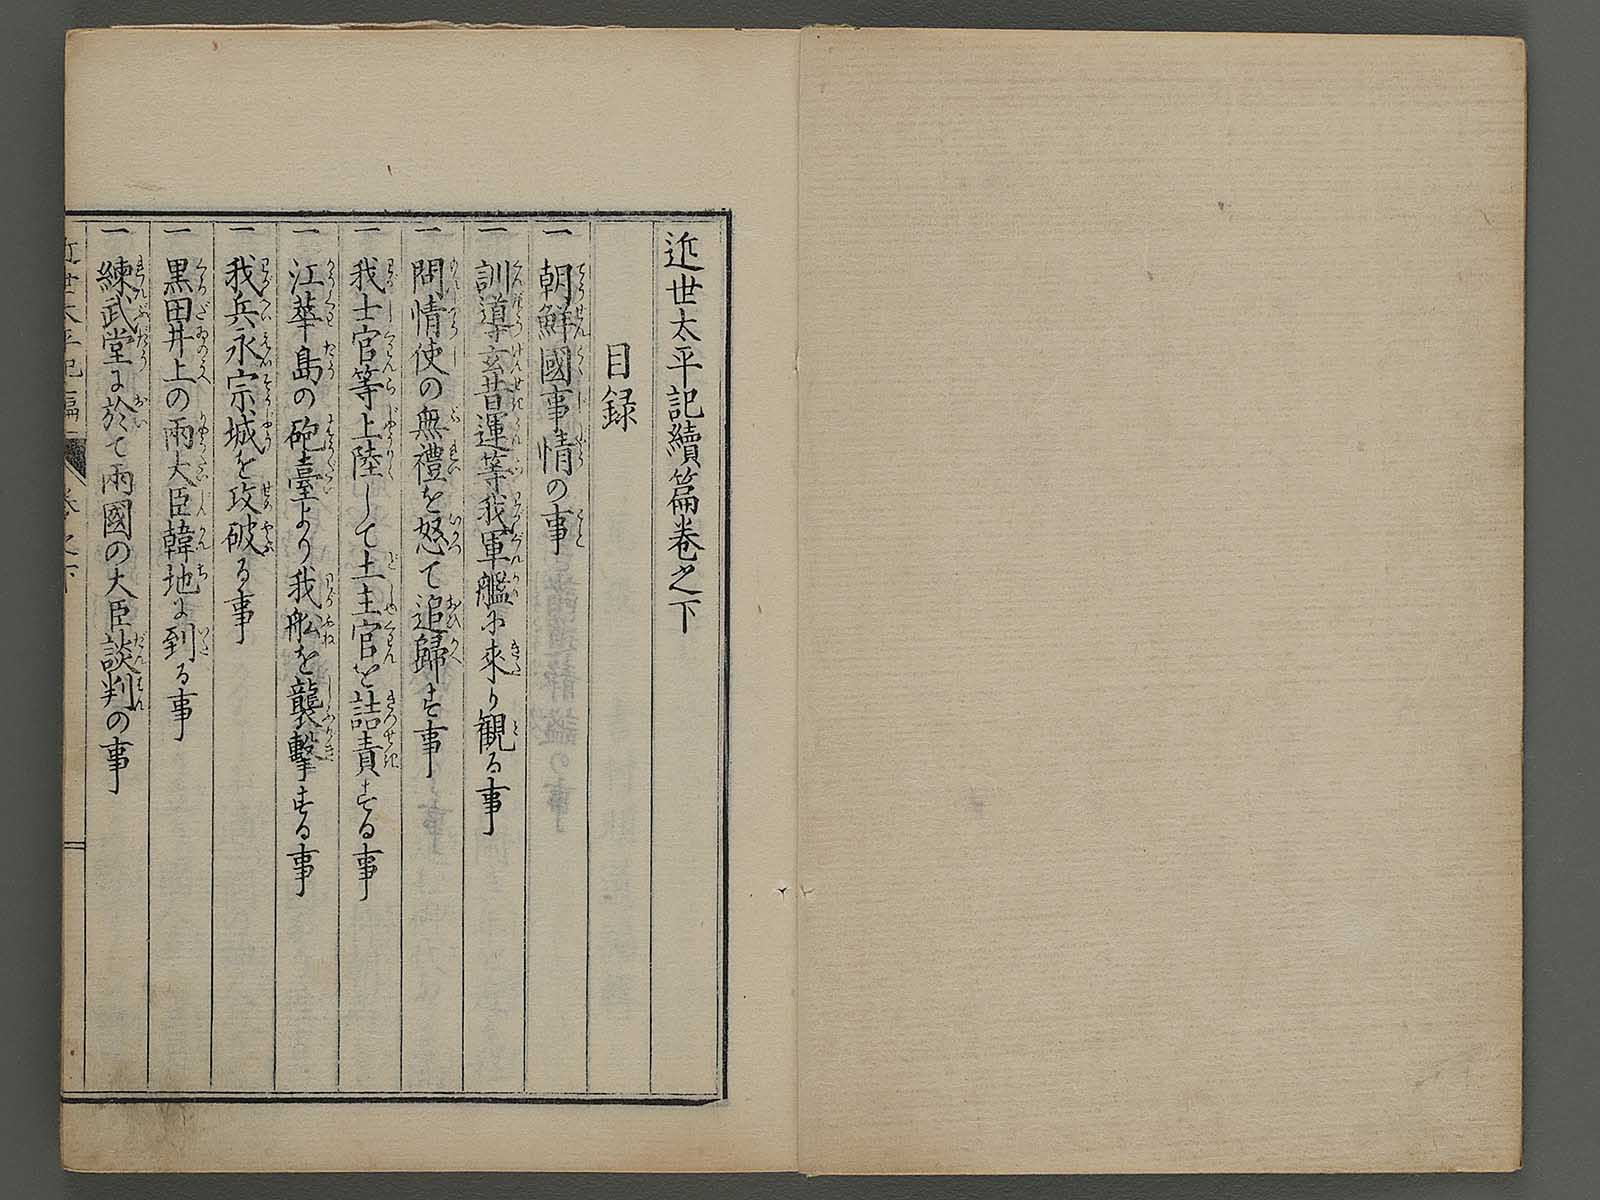 近世太平記續篇卷之下
目録
一 朝鮮國事情の事
一 訓導玄昔運等我軍艦に來り観る事
一 問情使の無禮を怒て追歸す事
一 我士官等上陸して土主官を詰責する事
一 江華島の砲臺より我船を襲撃する事
一 我兵永宗城を攻破る事
一 黒田井上の兩大臣韓地に到る事
一 練武堂に於て兩國の大臣談判の事